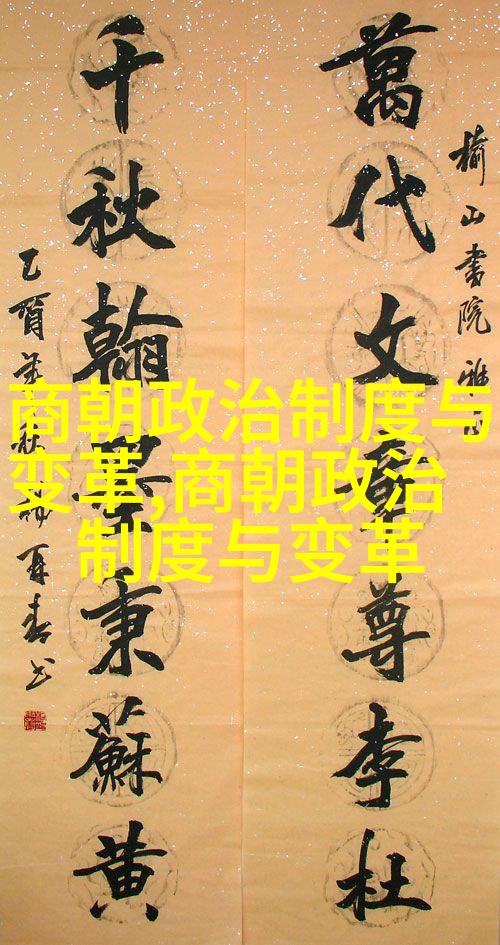 榆山書院雅
萬代文章尊李杜
千秋翰墨秉蘇黄
乙酉
商朝政治制度与
变革,商朝政治
制度与变革